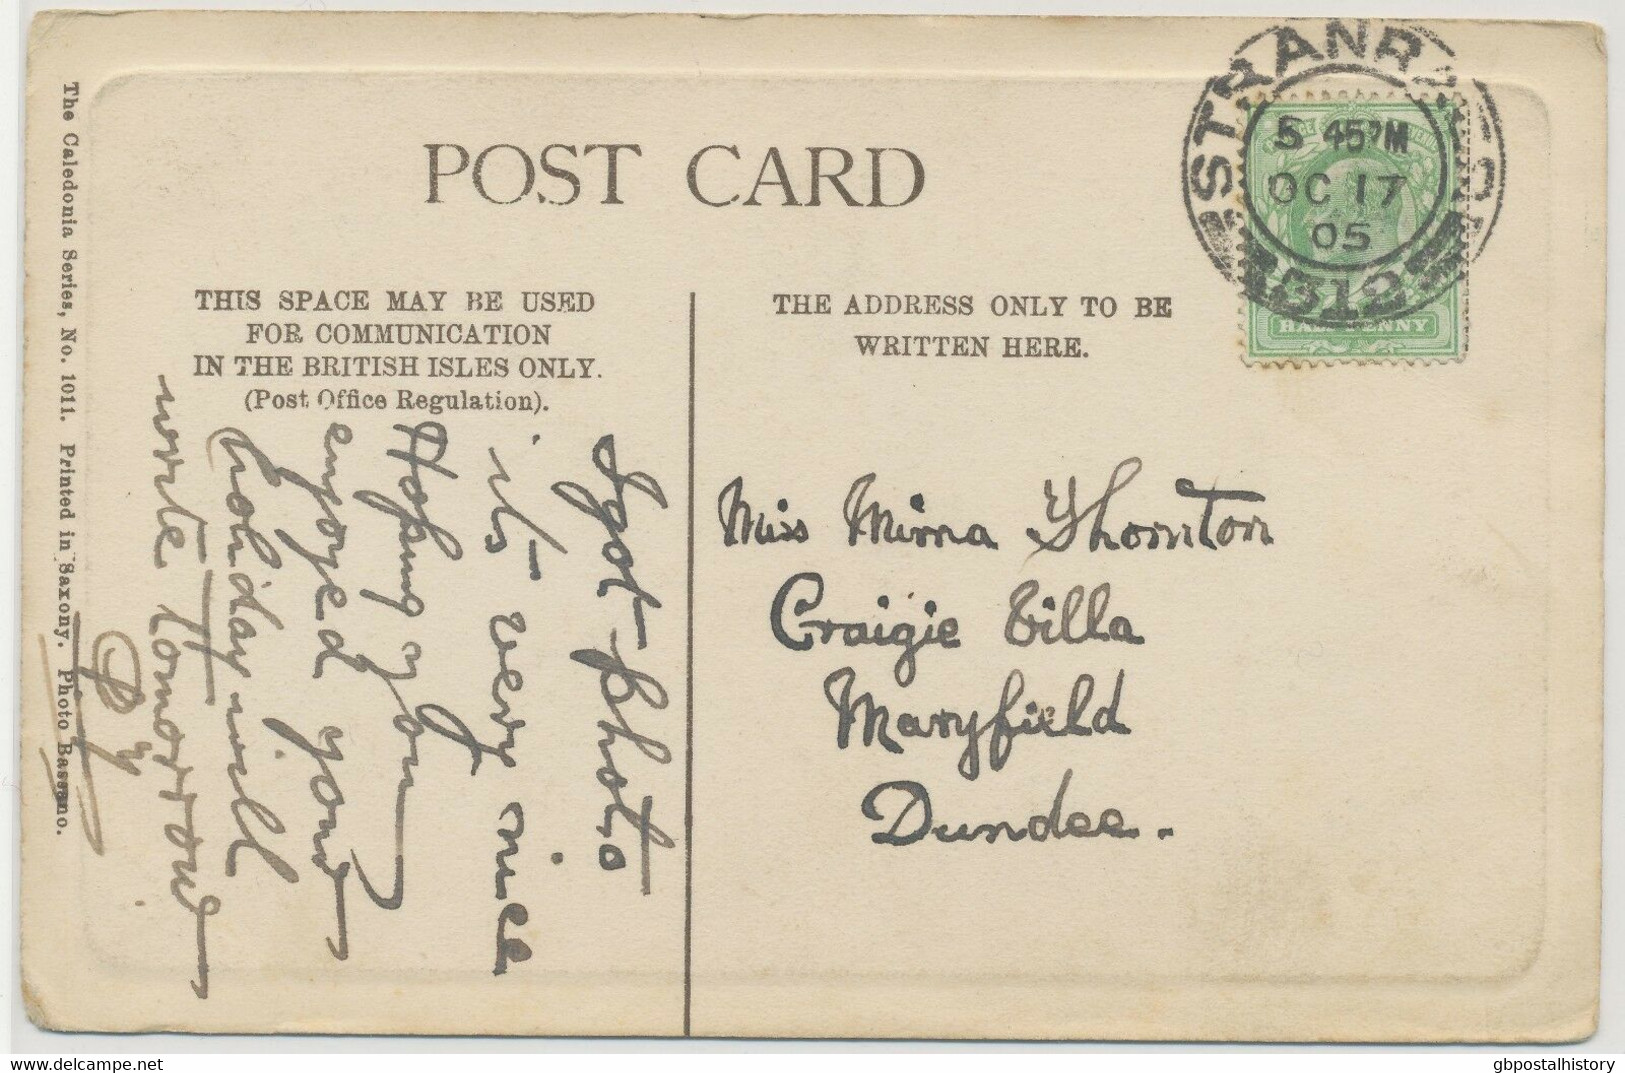 POST CARD
THIS SPACE MAY BE USED
FOR COMMUNICATION
IN THE BRITISH ISLES ONLY.
(Post Office Regulation).
THE ADDRESS ONLY TO BE
WRITTEN HERE.
STRANRAER
5 45PM
OC 17
05
312
HALFPENNY
I got photo
its very nice
Hoping you
enjoyed your
holiday will
write tomorrow
Miss Mima Thornton
Craigie Villa
Maryfield
Dundee.
The Caledonia Series, No. 1011. Printed in Saxony. Photo Bassano.
delcampe.net
gbpostalhistory